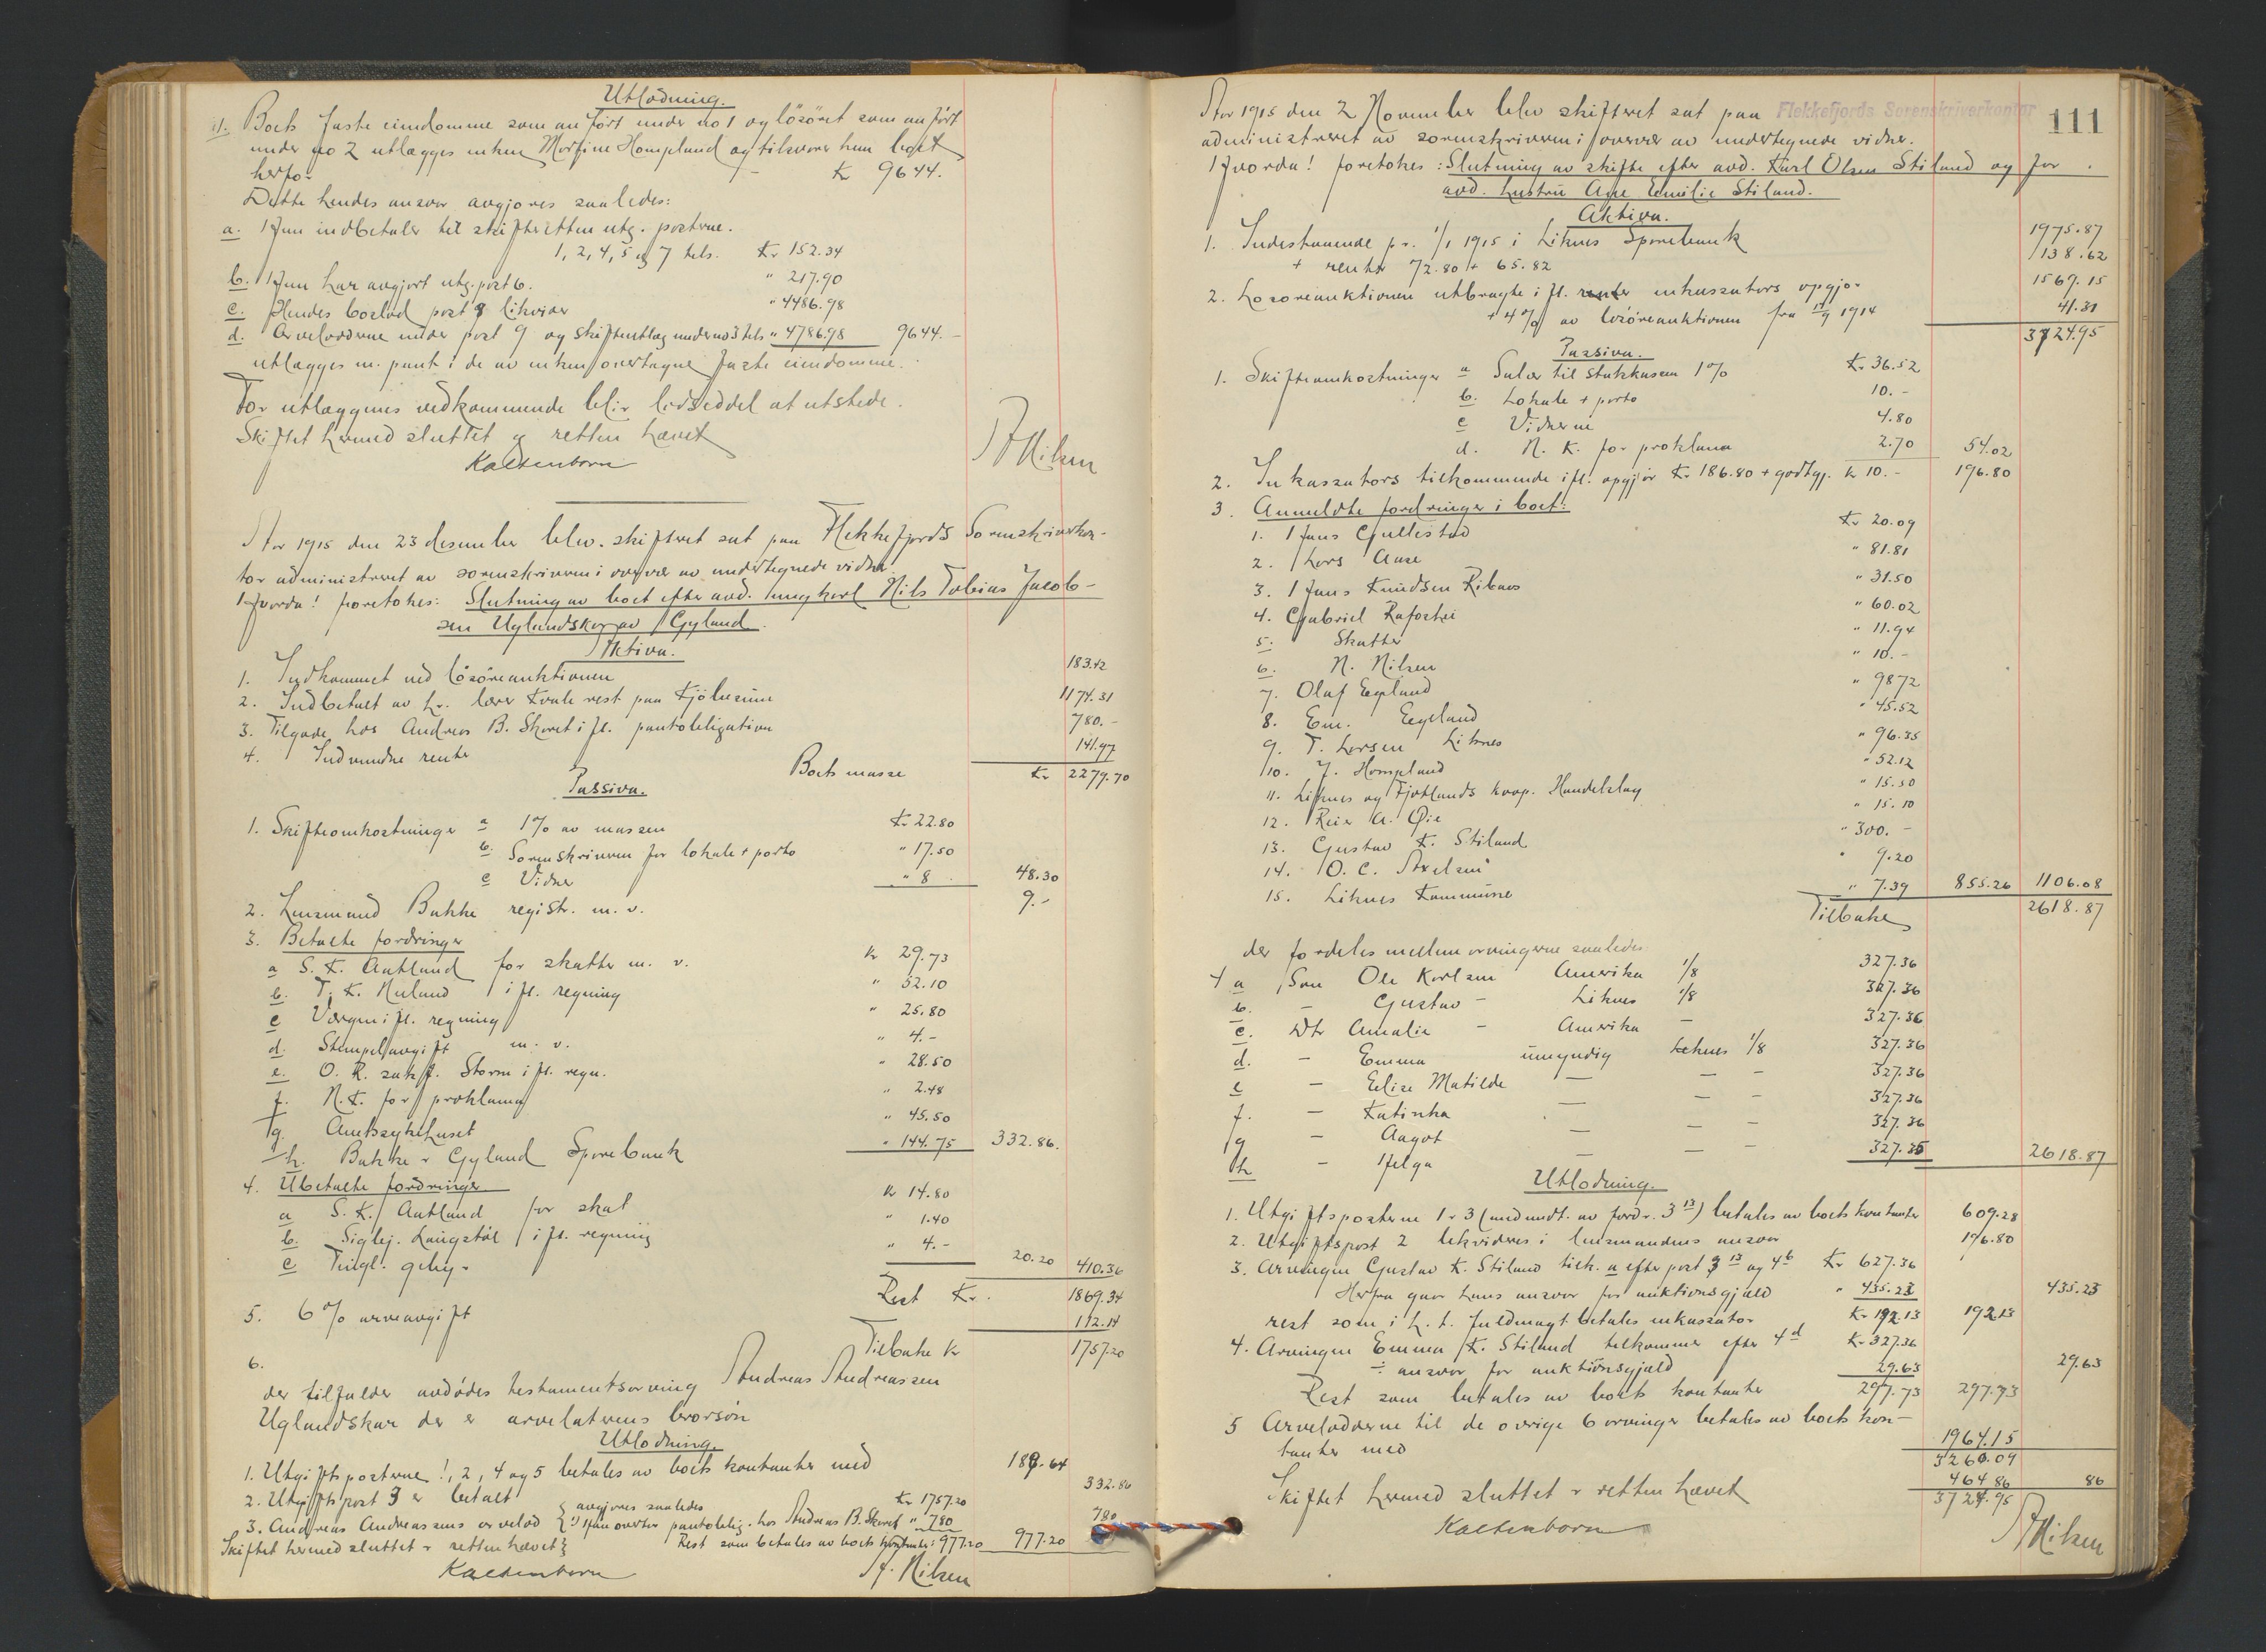 Utlodning.
1. Boets faste eiendomme som anført under no 1 og løsøret som anført
under no 2 utlægges enken Mosfine Hompland og tilsvarer hun boet
herfor - Kr 9644.
Dette hendes ansvar avgjøres saaledes:
a. Hun indbetaler til skifteretten utg. posterne.
1, 2, 4, 5 og 7 tils. Kr 152.34
b. Hun har avgjort utg. post 6. " 217.90
c. Hendes boslod post 8 likvider " 4486.98
d. Arvelodderne under post 9 og skifteutlæg under no 3 tils " 4786.98 9644.-
utlægges m. pant i de av enken overtagne faste eiendomme.
For utlæggenes vedkommende blir lodseddel at utstede.
Skiftet hermed sluttet og retten hævet
Kaltenborn
A Nilsen
Aar 1915 den 23 desember blev skifteret sat paa Flekkefjords Sorenskriverkon-
tor administreret av sorenskriveren i overvær av undertegnede vidner
Hvorda! foretokes: Slutning av boet efter avd. ungkarl Nils Tobias Jacob-
sen Uglandskar av Gyland.
Aktiva.
1. Indkommet ved løsøreauktionen 183.42
2. Indbetalt av hr. lærer Kvale rest paa kjøbesum 1174.31
3. Tilgode hos Andreas B. Skoret ifl. pantobligation 780.-
4. Indvundne renter 141.97
Boets masse Kr 2279.70
Passiva.
1. Skifteomkostninger a 1% av massen Kr 22.80
b. Sorenskriveren for lokale + porto " 17.50
c Vidner " 8 48.30
2. Lensmand Bakke registr. m. v. 9.-
3. Betalte fordringer
a S. K. Antland for skatter m. v. Kr 29.73
b. T. K. Nuland ifl. regning " 52.10
c Værgen ifl. regning " 25.80
d. Stempelavgift m. v. " 4.-
e. O. R. sakf. Storm ifl. regn. " 28.50
f. N. K. for proklama " 2.48
g. Amtssykehuset " 45.50
h. Bakke & Gyland Sparebank " 144.75 332.86.
4. Ubetalte fordringer
a S. K. Antland for skat Kr 14.80
b. Siglej. Langstøl ifl. regning " 1.40
c Tingl. gebyr " 4.- 20.20 410.36
Rest Kr. 1869.34
5. 6% arveavgift 112.14
Tilbake Kr 1757.20
6.
der tilfalder avdødes testamentsarving Andreas Andreassen
Uglandskar der er arvelaterens brorsøn
Utlodning.
1. Utgiftsposterne 1, 2, 4 og 5 betales av boets kontanter med 189.64
2. Utgiftspost 3 er betalt 332.86
3. Andreas Andreassens arvelod Kr 1757.20 avgjøres saaledes
1) Han overtar pantoblig. hos Andreas B. Skoret " 780 780
Rest som betales av boets kontanter: 977.20 977.20
Skiftet hermed sluttet & retten hævet
Kaltenborn
A. Nilsen
111
Aar 1915 den 2 November blev skifteret sat paa Flekkefjords Sorenskriverkontor
administreret av sorenskriveren i overvær av undertegnede vidner.
Hvorda! foretokes: Slutning av skifte efter avd. Karl Olsen Stiland og før
avd. hustru Ane Emilie Stiland.
Aktiva.
1. Indestaaende pr. 1/1 1915 i Liknes Sparebank 1975.87
+ renter 72.80 + 65.82 138.62
2. Løsøreauktionen utbragte ifl. inkassators opgjør 1569.15
+ 4% av løsøreauktionen fra 15/9 1914 41.31
3724.95
Passiva.
1. Skifteomkostninger a Salær til statskassen 1% Kr 36.52
b. Lokale + porto 10.-
c Vidnerne 4.80
d. N. K. for proklama 2.70 54.02
2. Inkassators tilkommende ifl. opgjør Kr 186.80 + godtgj. Kr 10.- 196.80
3. Anmeldte fordringer i boet:
1. Hans Gullestad Kr 20.09
2. Lars Aase " 81.81
3. Hans Knudsen Ribnes " 31.50
4. Gabriel Rafoshei " 60.02
5. Skatter " 11.94
6. N. Nilsen " 10.-
7. Olaf Egeland " 98.72
8. Em. Egeland " 45.52
9. T. Larsen Liknes " 96.35
10. J. Hompland " 52.12
11. Liknes og Fjotlands koop. Handelslag " 15.50
12. Reier A. Øie " 15.10
13. Gustav K. Stiland " 300.-
14. O. C. Axelsen " 9.20
15. Liknes Kommune " 7.39 855.26 1106.08
Tilbake 2618.87
der fordeles mellem arvingerne saaledes
4 a Søn Ole Karlsen Amerika 1/8 327.36
b. - Gustav - Liknes 1/8 327.36
c. Dtr Amalie - Amerika - 327.36
d. - Emma umyndig Liknes 1/8 327.36
e - Elise Matilde - - - 327.36
f. - Katinka - - - 327.36
g - Aagot - - - 327.36
h - Helga - - - 327.35 2618.87
Utlodning.
1. Utgiftsposterne 1 & 3 (undundt. av fordr. 3 13) betales av boets kontanter 609.28
2. Utgiftspost 2 likvideres i lensmandens ansvar 196.80
3. Arvingen Gustav K. Stiland tilk. a efter post 3 13 og 4b Kr 627.36
Herfra gaar hans ansvar for auktionsgjæld " 435.23 435.23
rest som i h. t. fuldmagt betales inkassator Kr 192.13 192.13
4. Arvingen Emma K. Stiland tilkommer efter 4d Kr 327.36
÷ ansvar for auktionsgjæld 29.63 29.63
Rest som betales av boets kontanter 297.73 297.73
5 Arvelodderne til de øvrige 6 arvinger betales av boets kon-
tanter med 1964.15
3260.09
464.86 86
3724.95
Skiftet hermed sluttet & retten hævet
Kaltenborn
A Nilsen